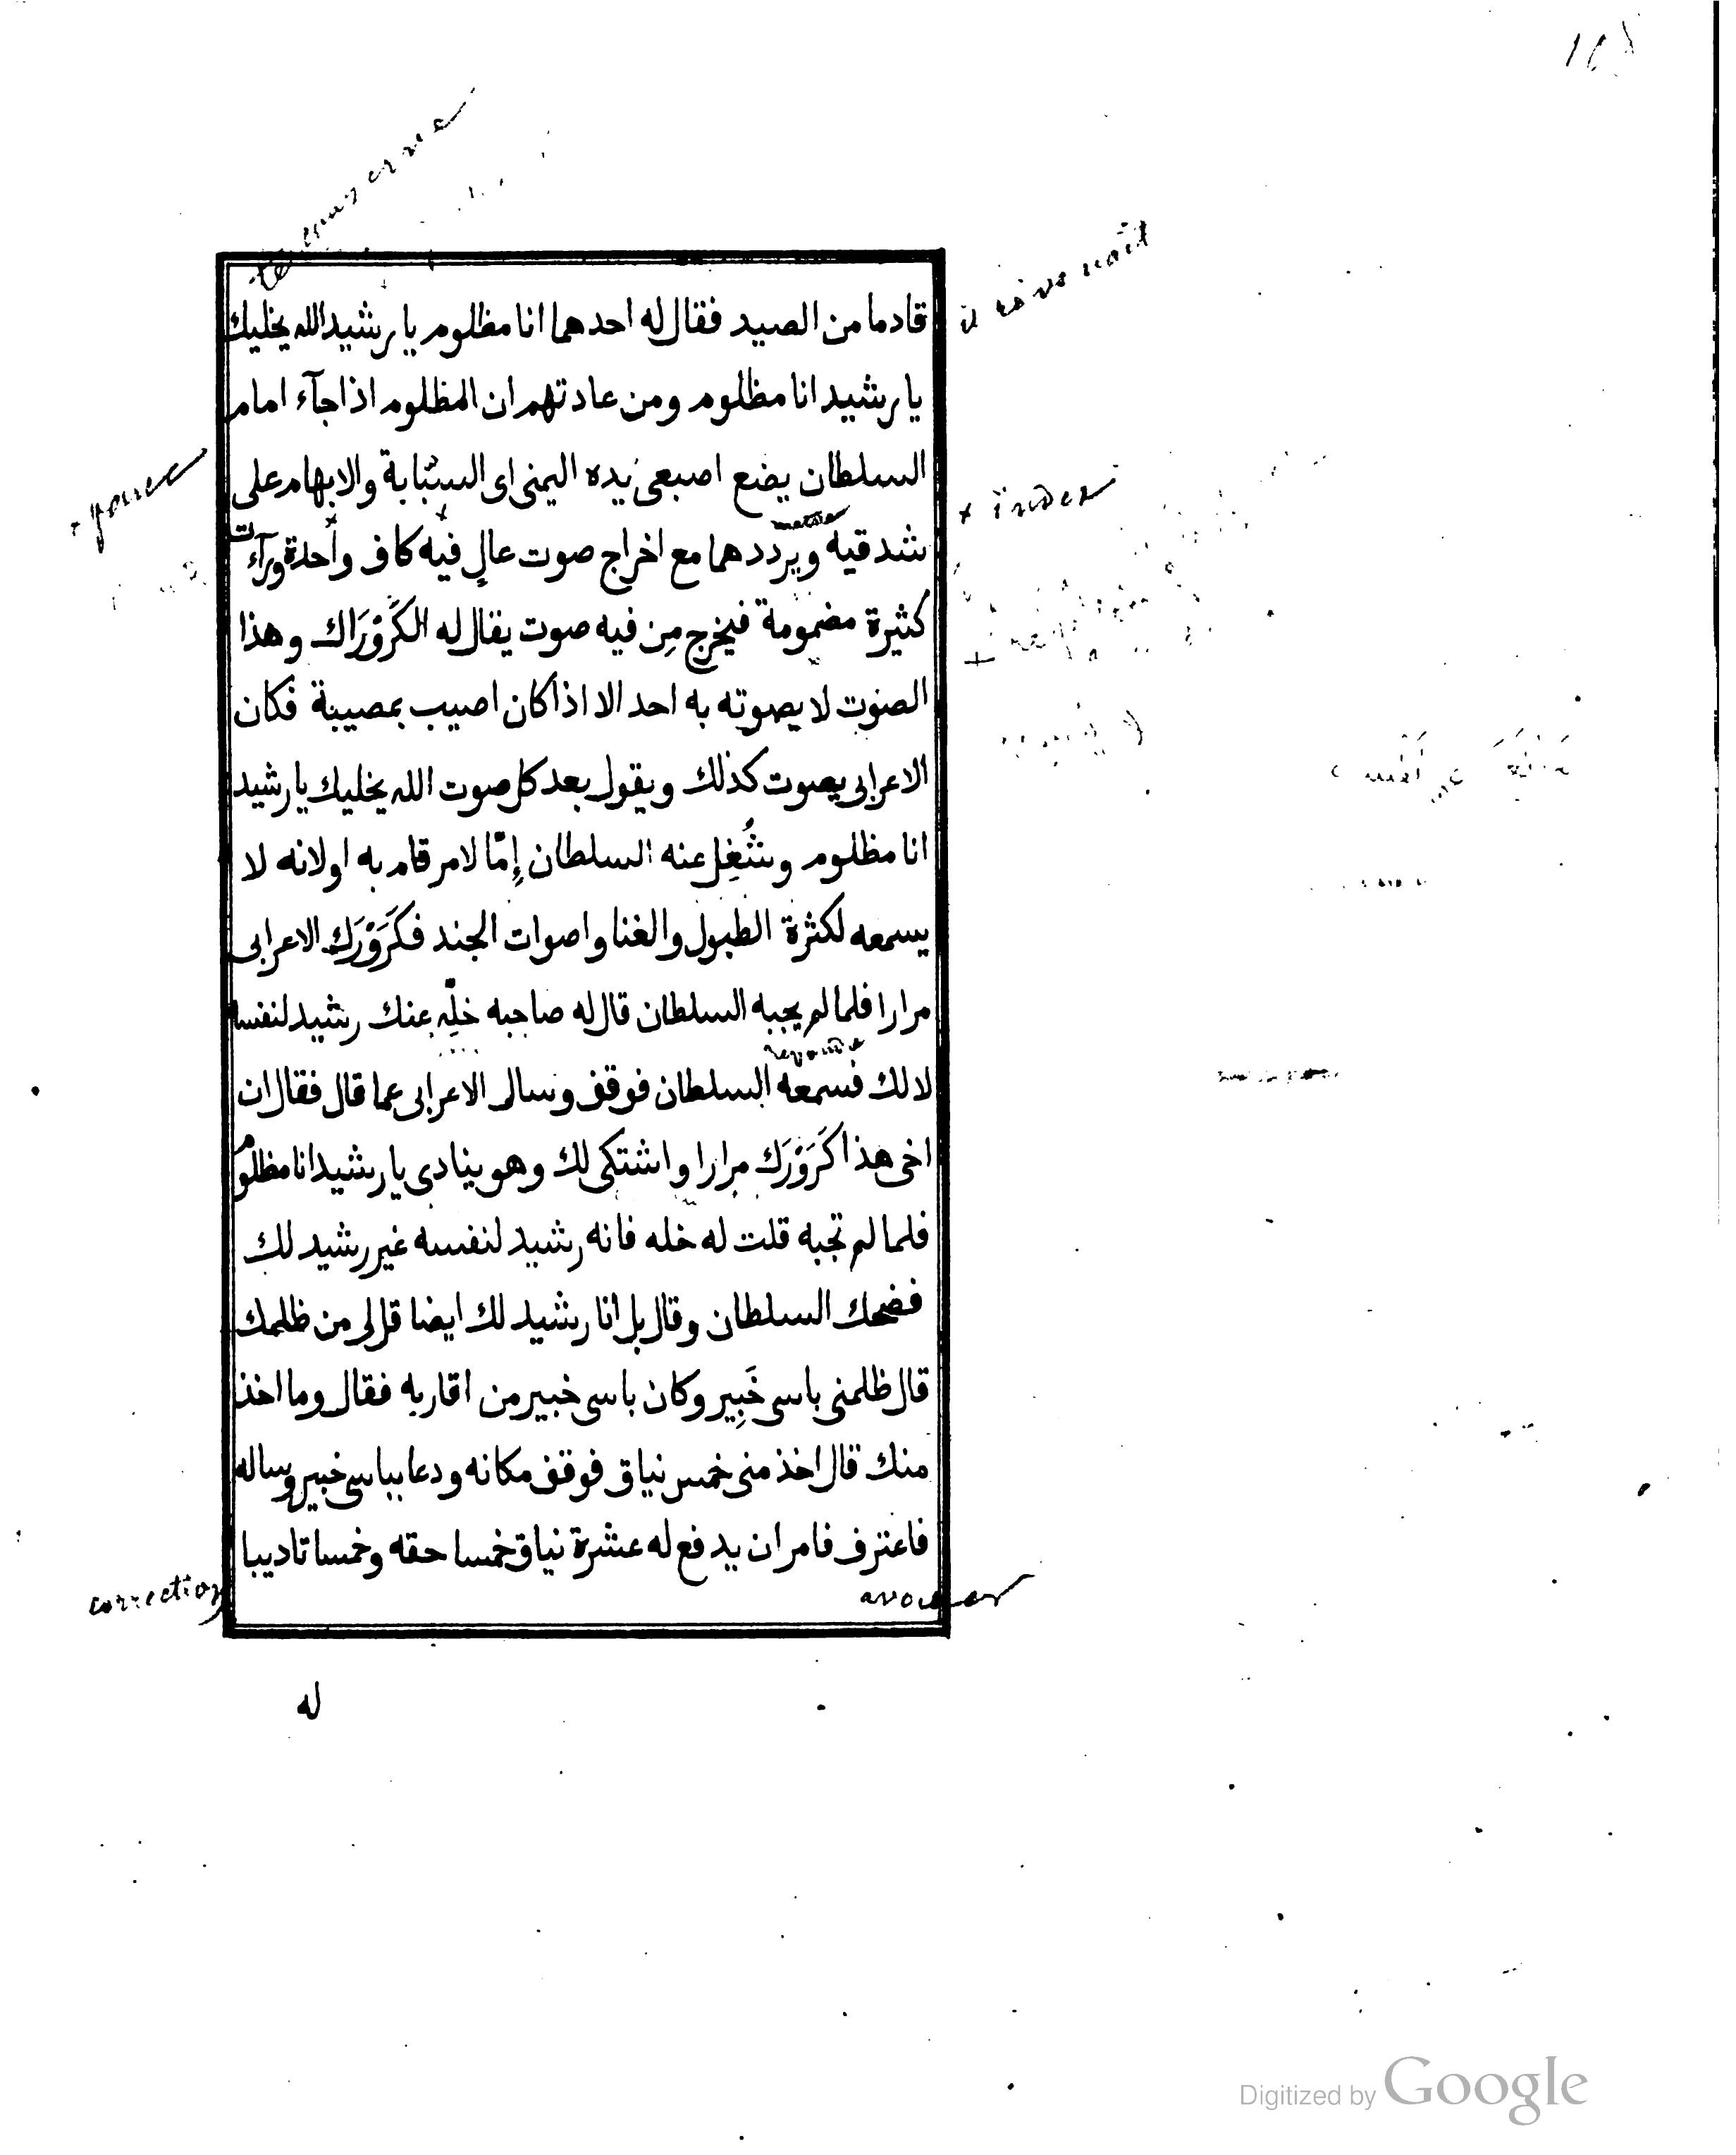 قادما من الصيد فقال له احدهما انا مظلوم يا رشيد الله يخليك
يا رشيد انا مظلوم ومن عادتهم ان المظلوم اذا جآء امام
السلطان يضع اصبعى يده اليمنى اى السبّابة والابهام على
شدقيه ويرددهما مع اخراج صوت عالٍ فيه كاف واحدة ورآءت
كثيرة مضمومة فيخرج مِن فيه صوت يقال له الكَرَوْرَاك وهذا
الصوت لا يصوته به احد الا اذا كان اصيب بمصيبة فكان
الاعرابى يصوت كذلك ويقول بعد كل صوت الله يخليك يا رشيد
انا مظلوم وشُغِل عنه السلطان إِمّا لامر قام به او لانه لا
يسمعه لكثرة الطبول والغنا واصوات الجند فكَرَوْرَك الاعرابى
مرارا فلما لم يجبه السلطان قال له صاحبه خلِّه عنك رشيد لنفسه
لا لك فسمعه السلطان فوقف وسال الاعرابى عما قال فقال ان
اخى هذا كَرَوْرَك مرارا واشتكى لك وهو ينادى يا رشيد انا مظلوم
فلما لم تجبه قلت له خله فانه رشيد لنفسه غير رشيد لك
فضحك السلطان وقال بل انا رشيد لك ايضا قل لى من ظلمك
قال ظلمنى باسى خَبِير وكان باسى خبير من اقاربه فقال وما اخذ
منك قال اخذ منى خمس نياق فوقف مكانه ودعا بباسى خبير وساله
فاعترف فامر ان يدفع له عشرة نياق خمسا حقه وخمسا تاديبا
له
+ index
correction
avouer
Digitized by Google